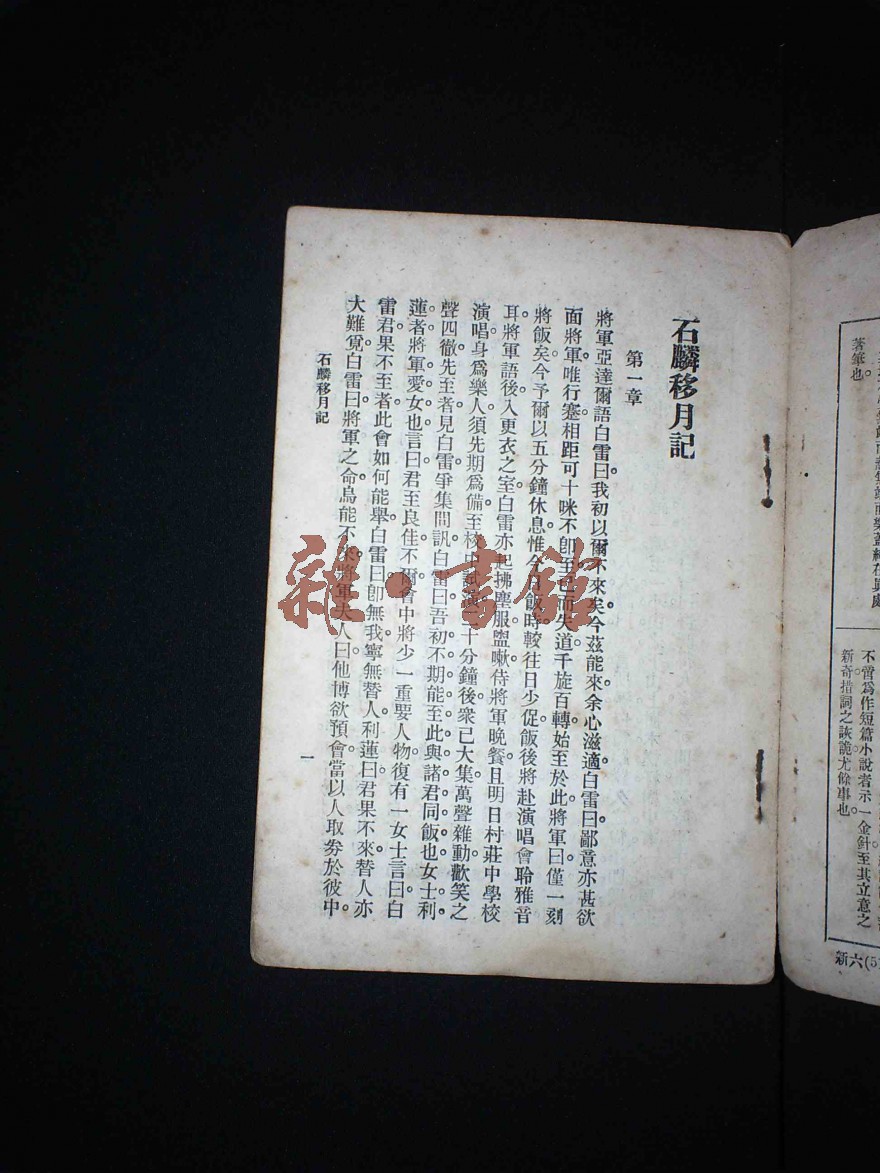 石麟移月記
第一章
將軍亞達爾語白雷曰。我初以爾不來矣。今茲能來。余心滋適。白雷曰。鄙意亦甚欲
面將軍。唯行蹇。相距可十咪。不卽至。已而失道。千旋百轉。始至於此。將軍曰。僅一刻
將飯矣。今予爾以五分鐘休息。惟今日飯時較往日少促。飯後將赴演唱會聆雅音
耳。將軍語後。入更衣之室。白雷亦起拂塵服盥嗽。待將軍晚餐。且明日村莊中學校
演唱。身爲樂人。須先期爲備。至校中試演。二十分鐘後。衆已大集。萬聲雜動。歡笑之
聲四徹。先至者見白雷。爭集問訊。白雷曰。吾初不期能至此與諸君同飯也。女士利
蓮者。將軍愛女也。言曰。君至良佳。不爾會中將少一重要人物。復有一女士言曰。白
雷君果不至者。此會如何能舉。白雷曰。卽無我。寧無替人。利蓮曰。君果不來。替人亦
大難覓。白雷曰。將軍之命。烏能不來。將軍夫人曰。他博欲預會。當以人取劵於彼中。
石麟移月記
一
著筆也。
不啻爲作短篇小說者示一金針至其立意之
新奇措詞之詼詭尤餘事也。
新六(5)
雜·書館